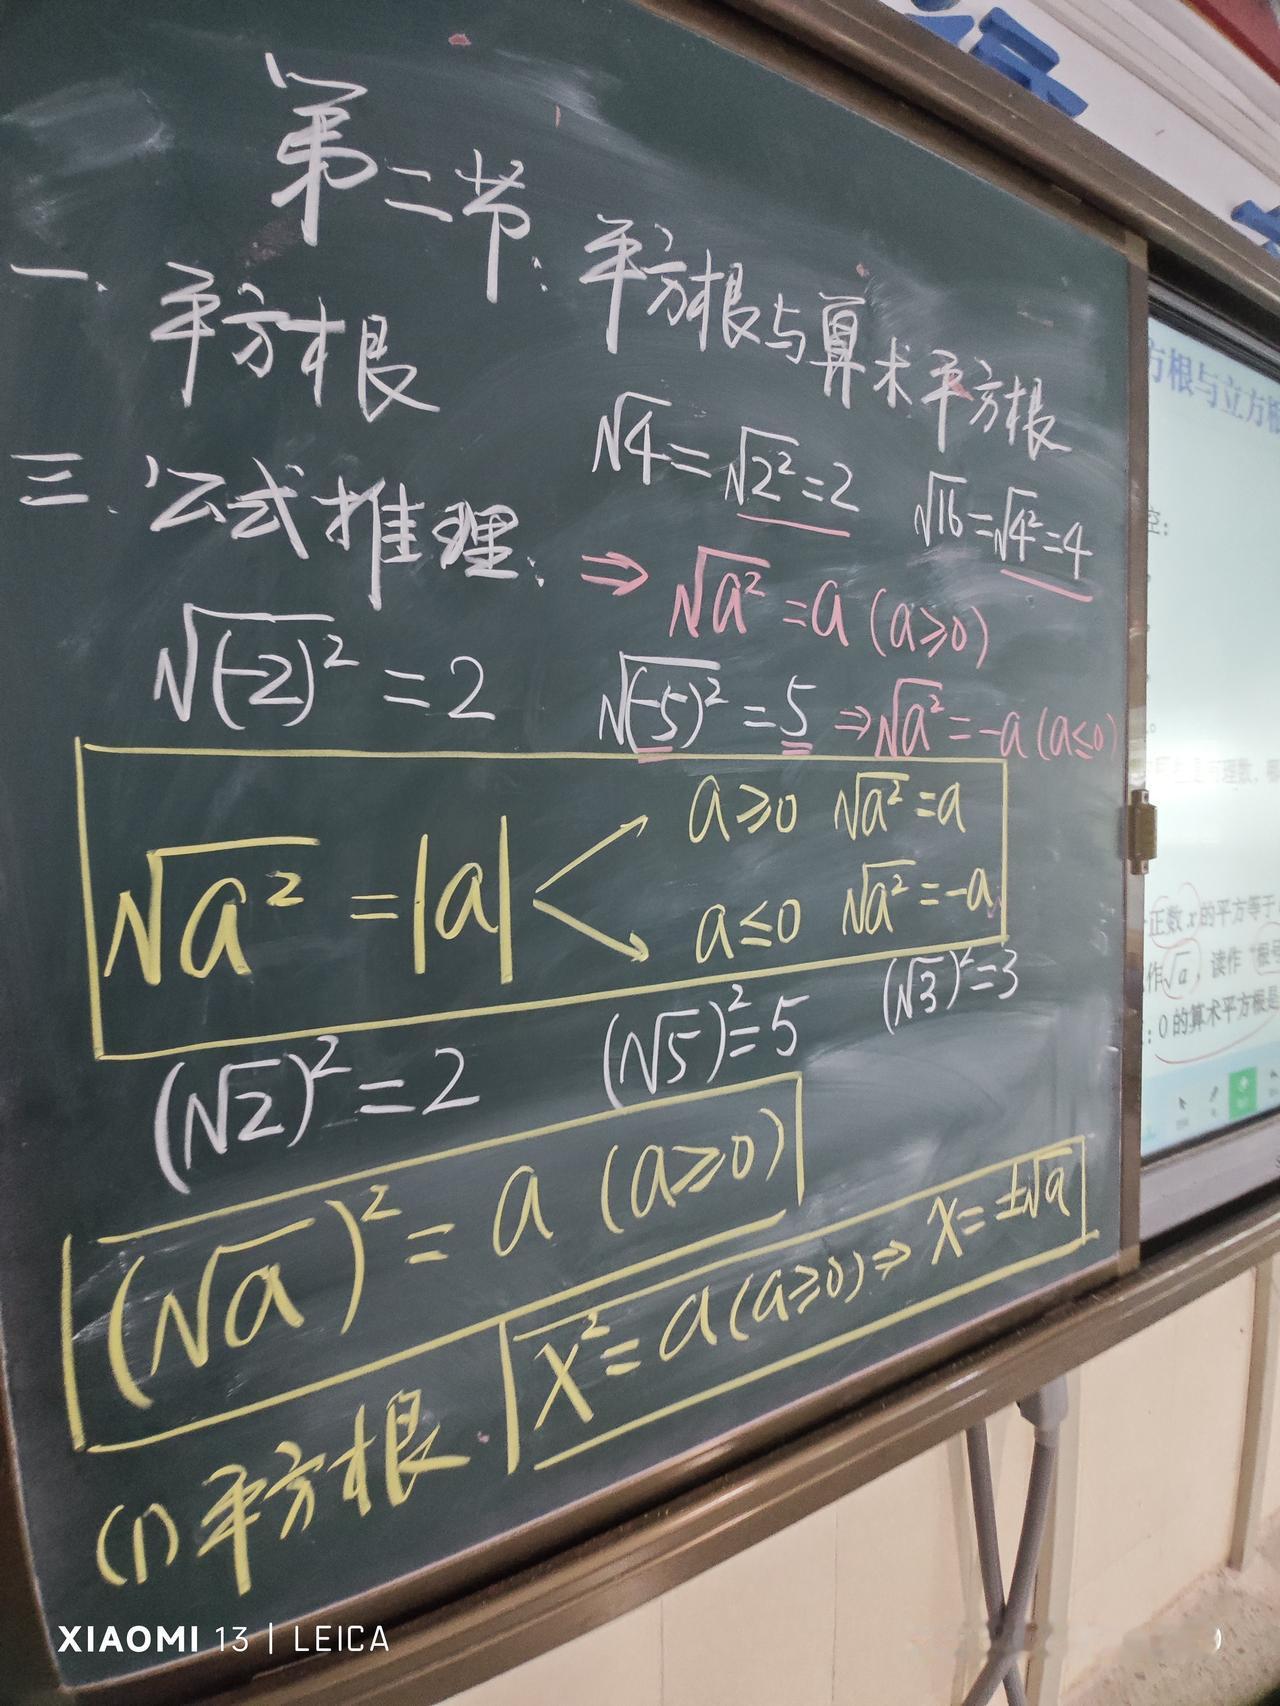 第二节:平方根与算术平方根
一、平方根
√4=√2²=2 √16=√4²=4
三、公式推理:
⇒√a²=a(a≥0)
√(-2)²=2 √(-5)²=5 ⇒√a²=-a(a≤0)
√a²=|a|
a≥0 √a²=a
a≤0 √a²=-a
(√2)²=2 (√5)²=5 (√3)²=3
(√a)²=a (a≥0)
(1)平方根. x²=a(a≥0)⇒x=±√a
方根与立方根
空:
正数x的平方等于
作√a,读作"根号
:0的算术平方根是
XIAOMI 13 | LEICA